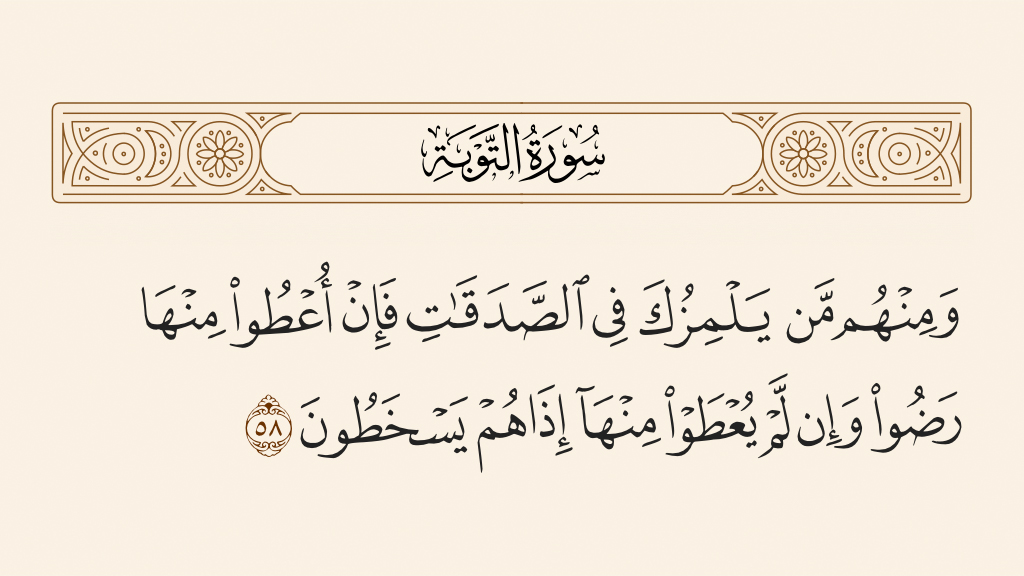 سُورَةُ التَّوْبَةِ
وَمِنْهُم مَّن يَلْمِزُكَ فِى ٱلصَّدَقَـٰتِ فَإِنْ أُعْطُوا۟ مِنْهَا
رَضُوا۟ وَإِن لَّمْ يُعْطَوْا۟ مِنْهَآ إِذَا هُمْ يَسْخَطُونَ ٥٨